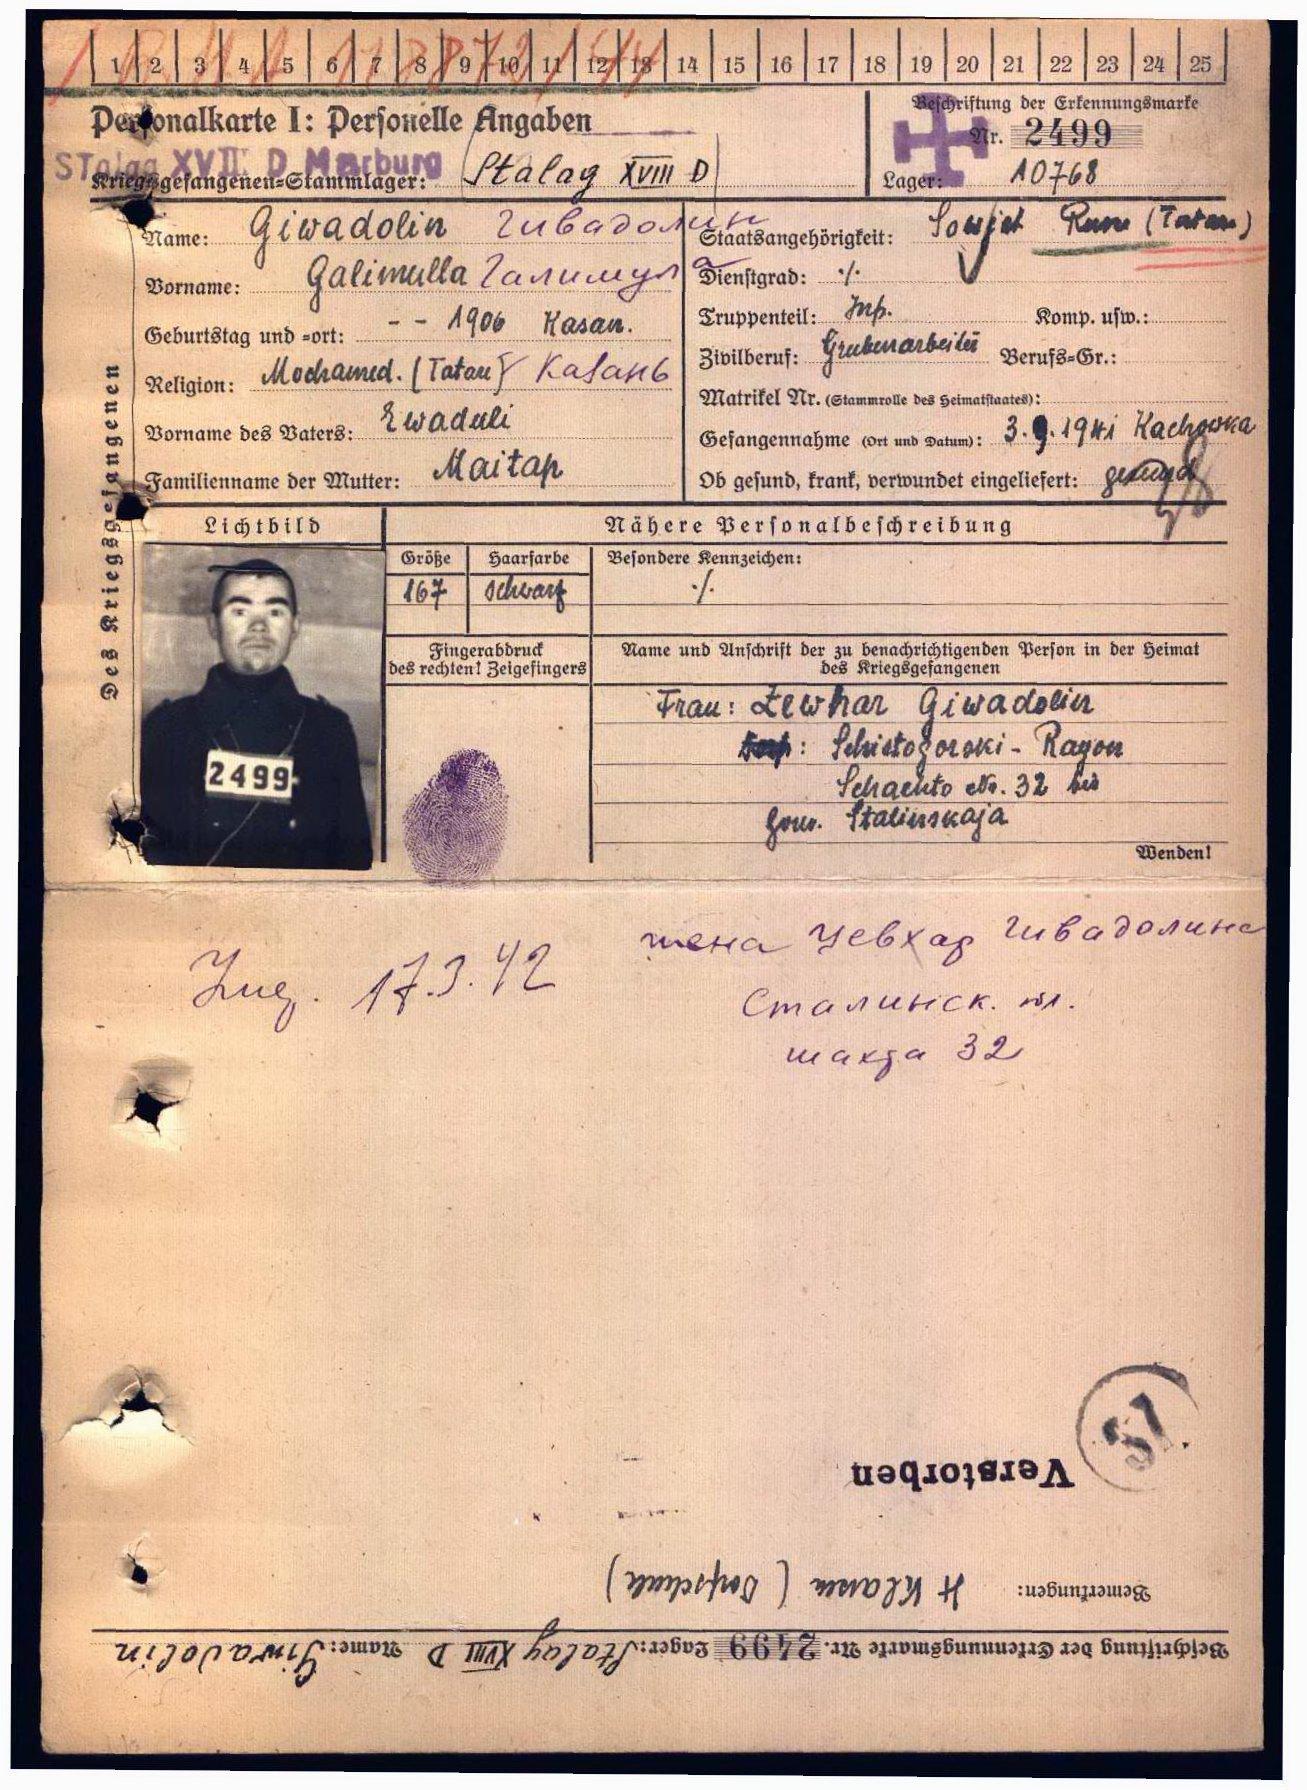 1 2 3 4 5 6 7 8 9 10 11 12 13 14 15 16 17 18 19 20 21 22 23 24 25
Personalkarte I: Personelle Angaben
Beschriftung der Erkennungsmarke
Nr. 2499
Stalag XVII D Marburg
Kriegsgefangenen-Stammlager: Stalag XVIII D
Lager: 10768
Des Kriegsgefangenen
Name: Giwadolin Гивадолин
Vorname: Galimulla Галимула
Geburtstag und =ort: - - 1906 Kasan.
Religion: Mochamed. (Tatar) Казань
Vorname des Vaters: Ewaduli
Familienname der Mutter: Maitap
Staatsangehörigkeit: Sowjet Russe (Tatare)
Dienstgrad: ./.
Truppenteil: Inf. Komp. usw.:
Zivilberuf: Grubenarbeiter Berufs=Gr.:
Matrikel Nr. (Stammrolle des Heimatstaates):
Gefangennahme (Ort und Datum): 3.9.1941 Kachowka
Ob gesund, krank, verwundet eingeliefert: gesund
Lichtbild
Nähere Personalbeschreibung
Größe
Haarfarbe
Besondere Kennzeichen:
167
schwarz
./.
Fingerabdruck
des rechten! Zeigefingers
Name und Anschrift der zu benachrichtigenden Person in der Heimat
des Kriegsgefangenen
2499
Frau: Zewhar Giwadolin
: Schistogorski - Rayon
Schachto No. 32 bis
Gouv. Stalinskaja
Wenden!
жена Чевхар Гивадолина
17.3.42
Сталинск.
шахта 32
51
Verstorben
Bemerkungen:
Beschriftung der Erkennungsmarke Nr. 2499 Lager: Stalag XVIII D Name: Giwadolin